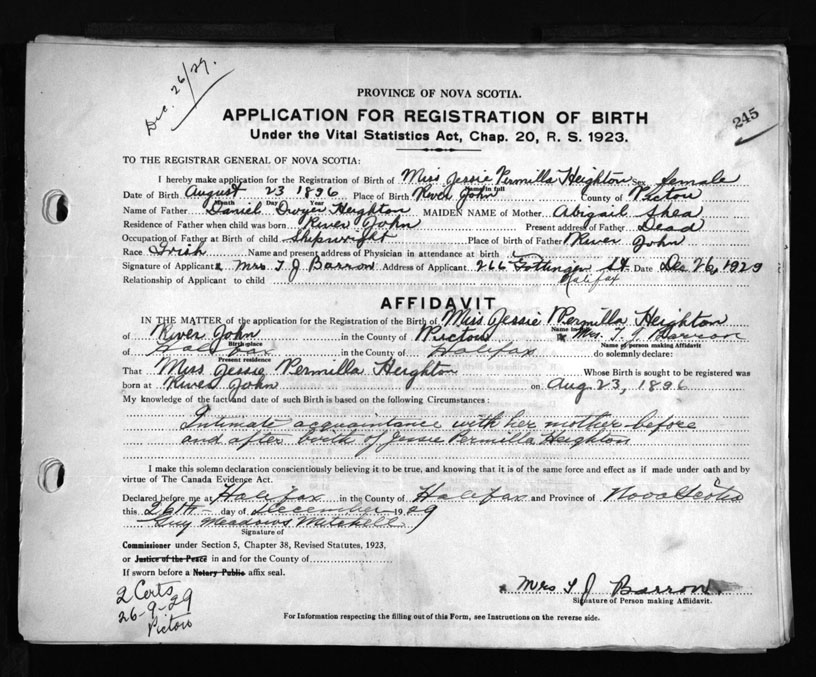 Dec. 26/29.
PROVINCE OF NOVA SCOTIA.
245
APPLICATION FOR REGISTRATION OF BIRTH
Under the Vital Statistics Act, Chap. 20, R. S. 1923.
TO THE REGISTRAR GENERAL OF NOVA SCOTIA:
I hereby make application for the Registration of Birth of Miss Jessie Permilla Heighton Sex female
Name in full
Date of Birth August 23 1896 Place of Birth River John County of Pictou
Month Day Year
Name of Father Daniel Dwyer Heighton MAIDEN NAME of Mother Abigail Shea
Residence of Father when child was born River John Present address of Father Dead
Occupation of Father at Birth of child Shipwright Place of birth of Father River John
Race Irish Name and present address of Physician in attendance at birth
Signature of Applicant Mrs T J Barron Address of Applicant 266 Gottingen St Date Dec 26, 1929
Relationship of Applicant to child Halifax
AFFIDAVIT
IN THE MATTER of the application for the Registration of the Birth of Miss Jessie Permilla Heighton
Name in full
of River John in the County of Pictou Mrs. T. J. Barron
Birth place Name of person making Affidavit
of Halifax in the County of Halifax do solemnly declare:
Present residence
That Miss Jessie Permilla Heighton Whose Birth is sought to be registered was
born at River John on Aug 23, 1896
My knowledge of the fact and date of such Birth is based on the following Circumstances:
Intimate acquaintance with her mother before
and after birth of Jessie Permilla Heighton
I make this solemn declaration conscientiously believing it to be true, and knowing that it is of the same force and effect as if made under oath and by
virtue of The Canada Evidence Act.
Declared before me at Halifax in the County of Halifax and Province of Nova Scotia
this 26th day of December 1929
Guy Meadows Mitchell
Signature of
Commissioner under Section 5, Chapter 38, Revised Statutes, 1923,
or Justice of the Peace in and for the County of
If sworn before a Notary Public affix seal.
Mrs T J Barron
Signature of Person making Affidavit.
2 Certs
26-9-29
Pictou
For Information respecting the filling out of this Form, see Instructions on the reverse side.